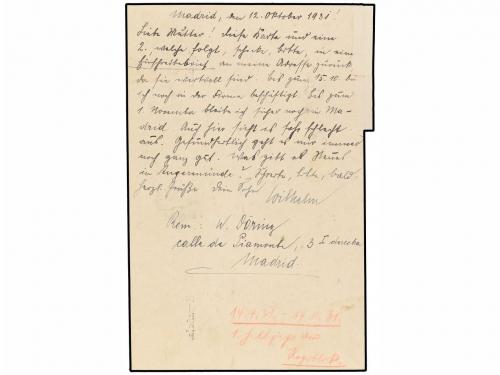 Madrid, den 12. Oktober 1931!
Liebe Mutter! Diese Karte und eine
2., welche folgt, schicke, bitte, in eine
Einschreibebrief an meine Adresse zurück
da sie wertvoll sind. Bis zum 15.10. bin
ich noch in der Firma beschäftigt. Bis zum
1. November bleibe ich sicher noch in Ma-
drid. Auf hier sieht es sehr schlecht
aus. Gesundheitlich geht es mir immer
noch ganz gut. Was gibt es Neues
in Angermünde? Schreibe, bitte, bald
herzl. Grüße Dein Sohn Wilhelm
Rem.: W. Döring
calle de Piamonte, 3 I derecha
Madrid.
14.4.31. - 14.10.31.
1. Halbjahr der
Republik.